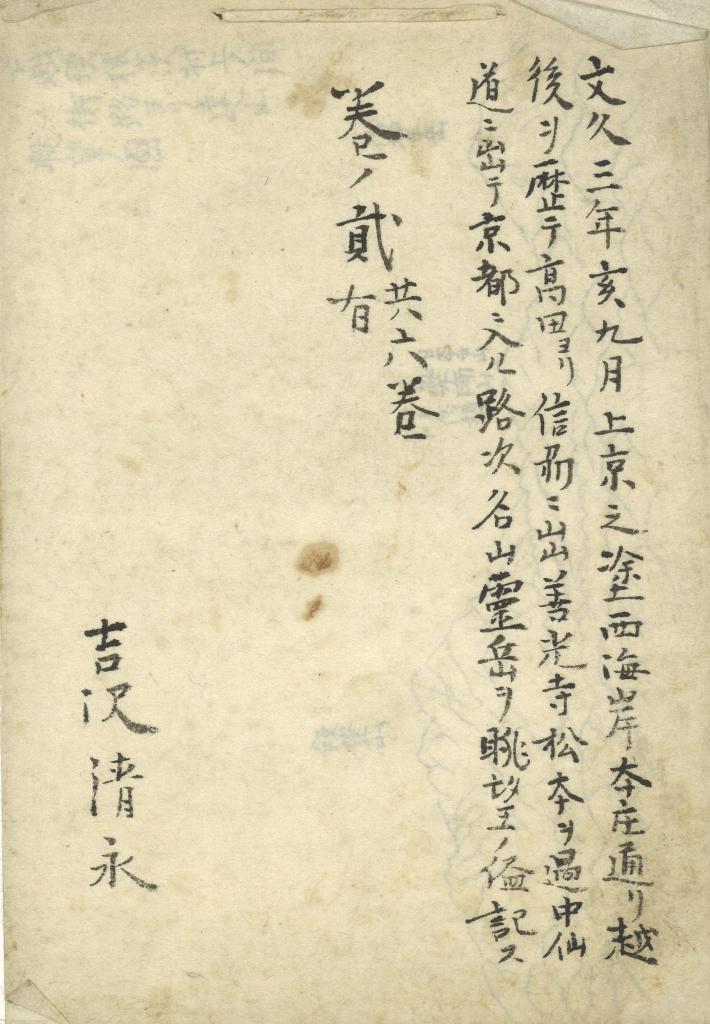 文久三年亥九月上京之塗西海岸本庄通リ越
後ヲ歴テ高田ヨリ信刕ニ出善光寺松本ヲ過中仙
道ニ出テ京都ニ入ル路次名山靈岳ヲ眺望ノ儘記ス
巻ノ貳
共六巻
有
吉沢清永